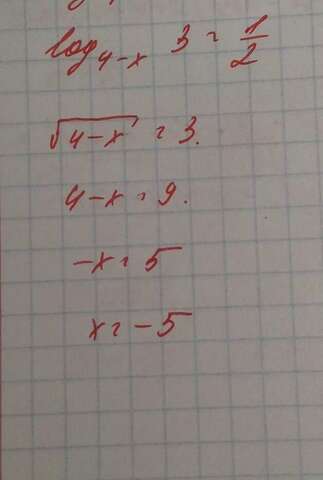 log₄₋ₓ 3 = 1/2
√(4-x) = 3.
4-x = 9.
-x = 5
x = -5